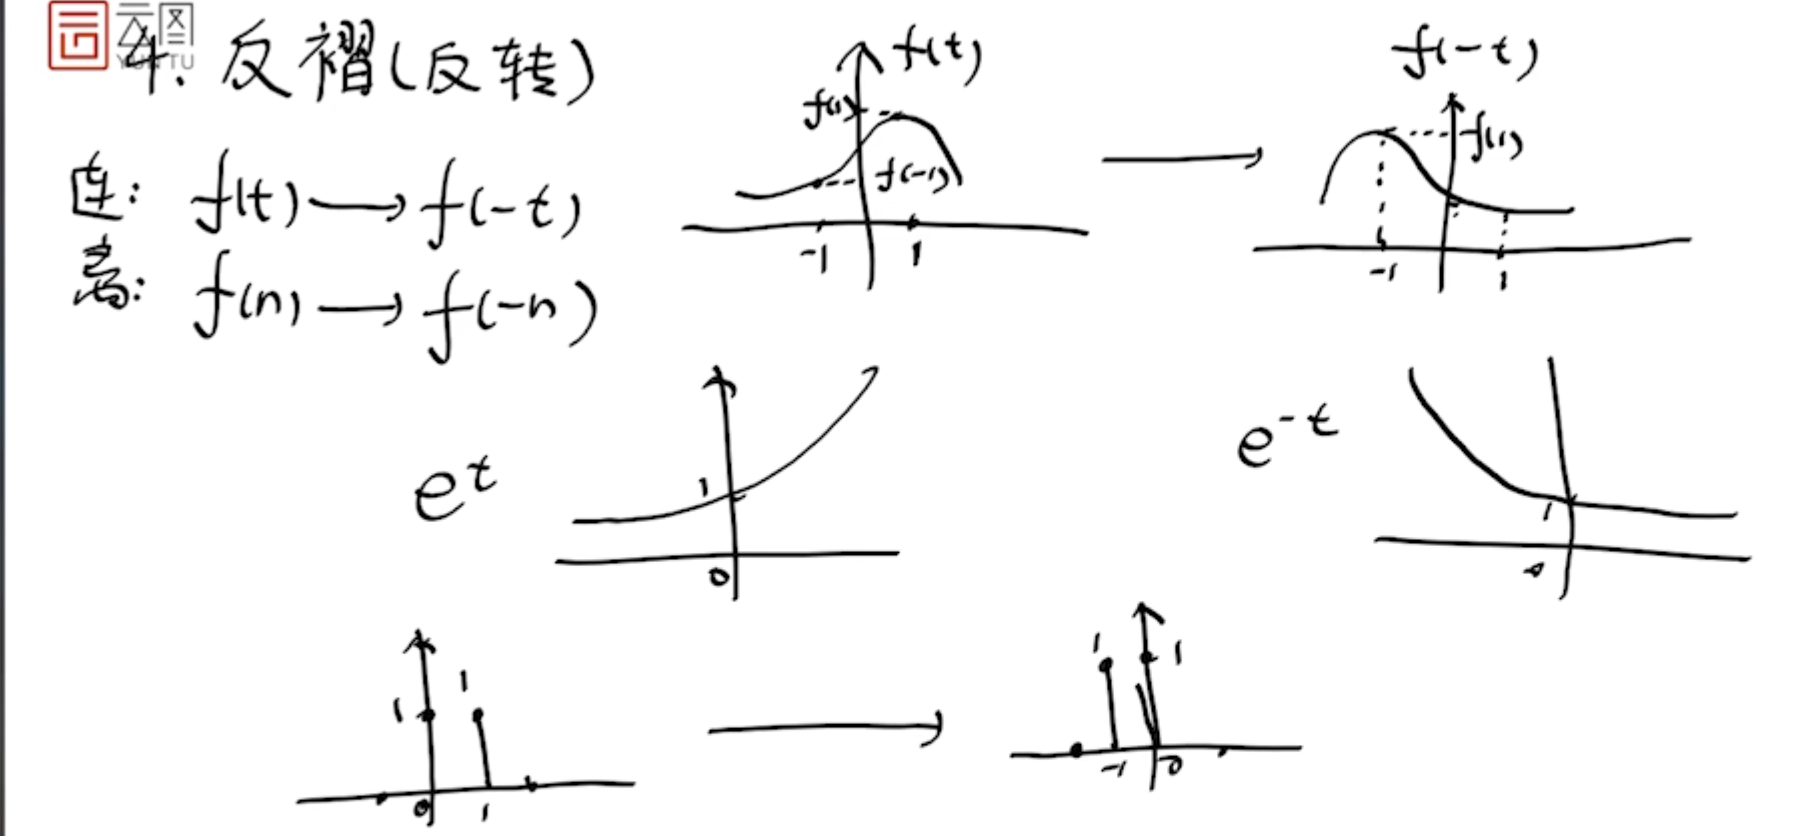 云图
YUNTU
4. 反褶(反转)
连: f(t) → f(-t)
离: f(n) → f(-n)
f(t)
f(1)
f(-1)
-1 1
f(-t)
f(1)
-1 1
e^t
1
0
e^-t
1
0
1 1
0 1
1 1
-1 0